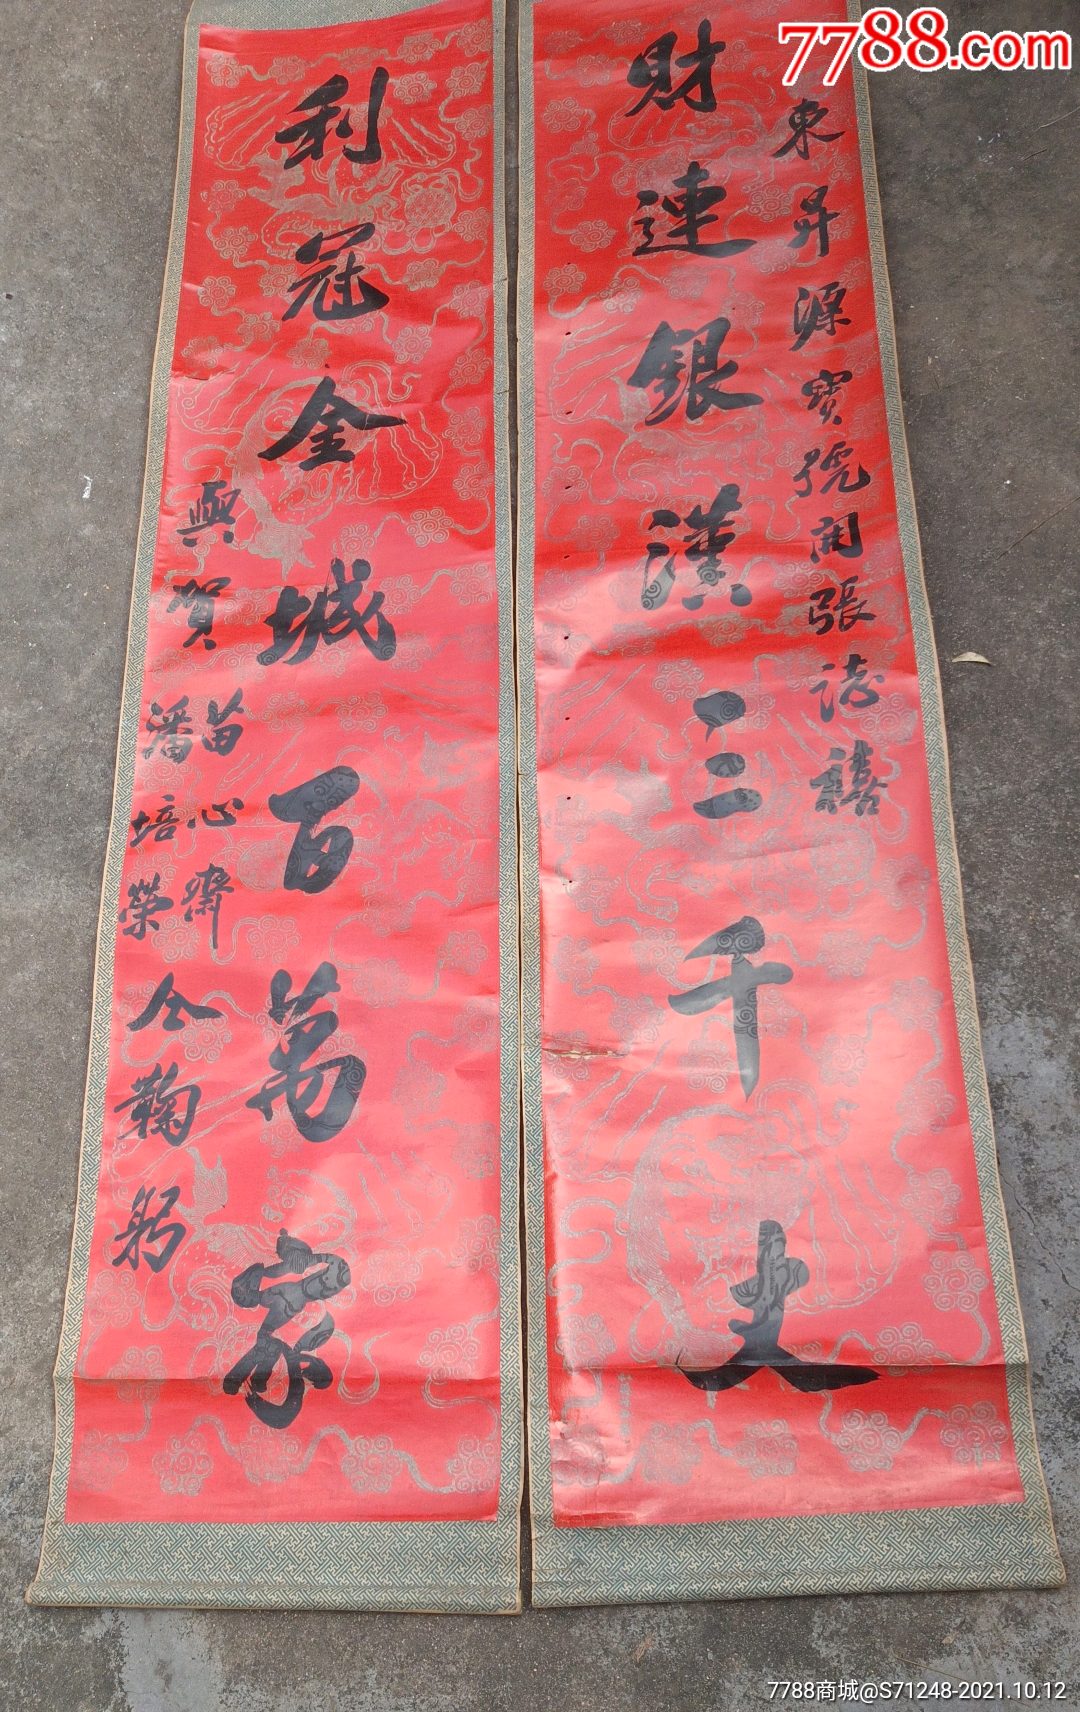 7788.com
東昇源寳號開張誌禧
財連銀漢三千丈
利冠金城百萬家
輿賀
苗心齋
潘培榮
仝鞠躬
7788商城@S71248-2021.10.12